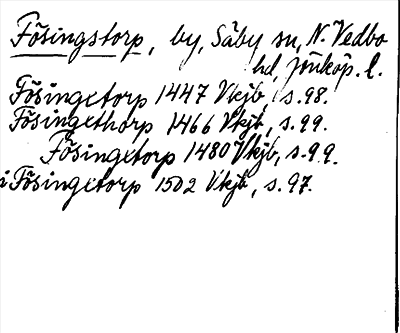 Fösingstorp, by, Säby sn, N. Vedbo
hd, Jönköp. l.
Fösingetorp 1447 Vkjb, s. 98.
Fösingethorp 1466 Vkjb, s. 99.
Fösingetorp 1480 Vkjb, s. 99.
i Fösingetorp 1502 Vkjb, s. 97.